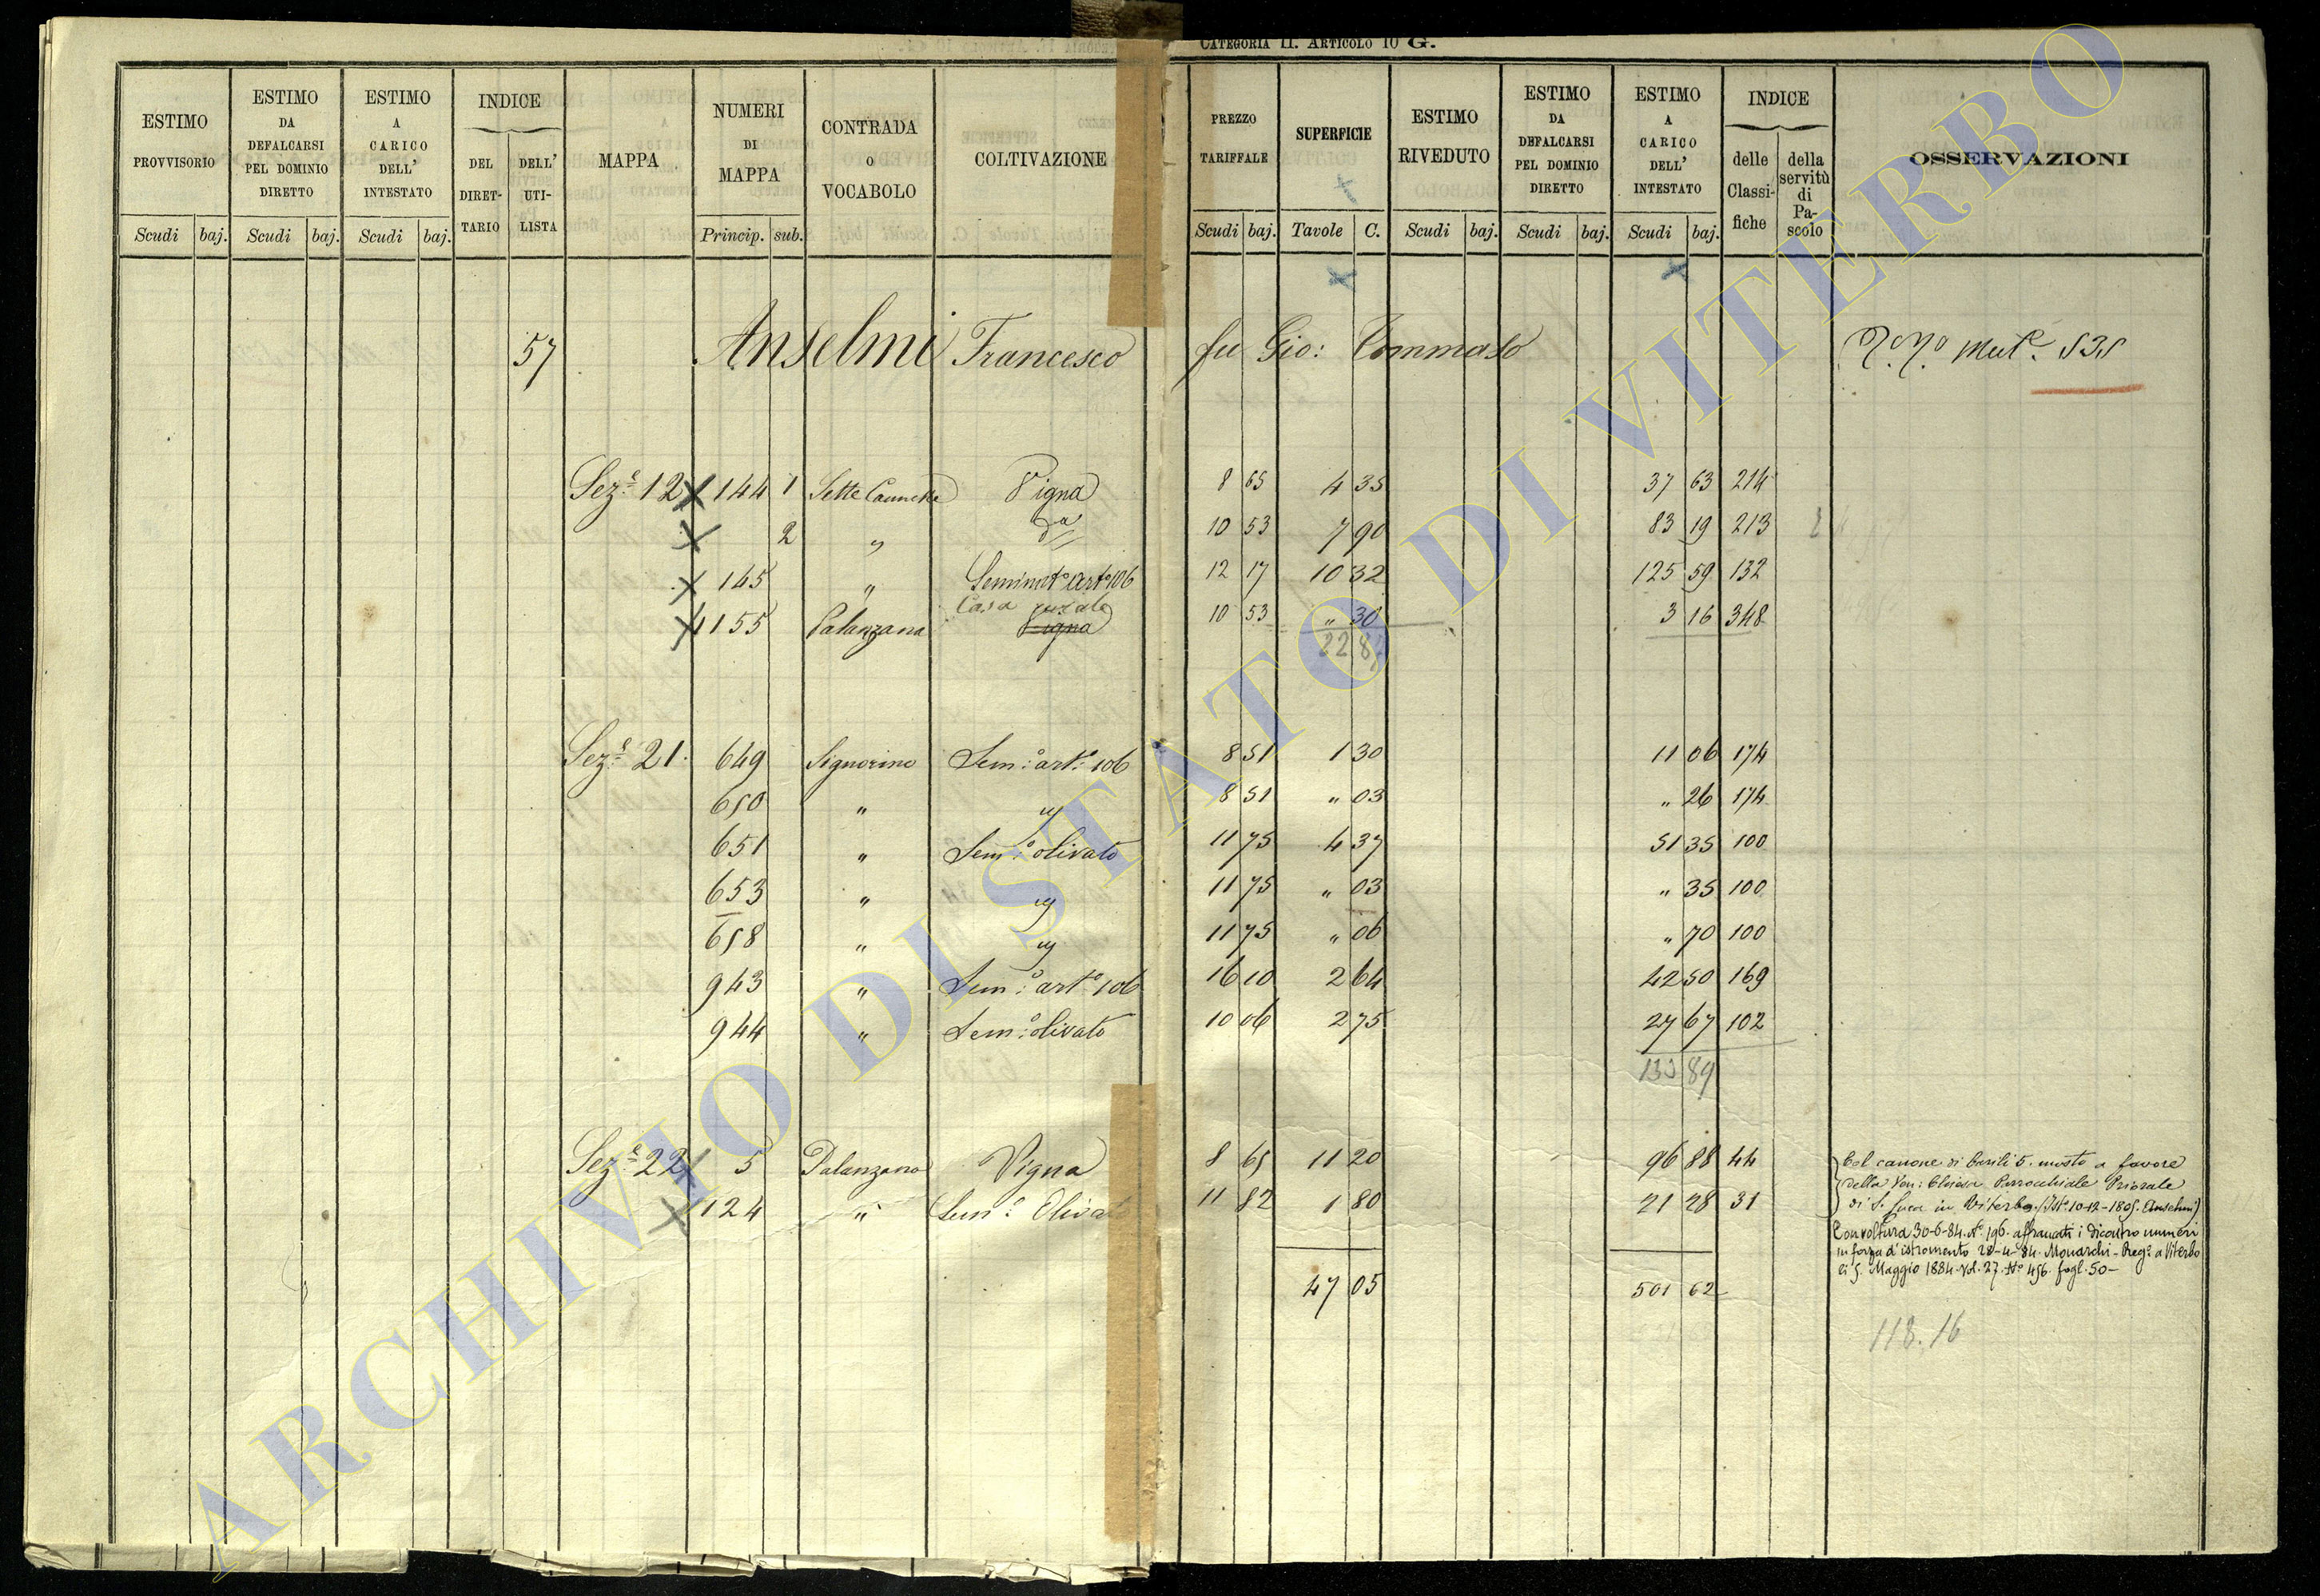 CATEGORIA II. ARTICOLO 10 G.
ESTIMO PROVVISORIO
ESTIMO DA DEFALCARSI PEL DOMINIO DIRETTO
ESTIMO A CARICO DELL' INTESTATO
INDICE
DEL DIRET-TARIO
DELL' UTI-LISTA
MAPPA
NUMERI DI MAPPA
CONTRADA O VOCABOLO
COLTIVAZIONE
PREZZO TARIFFALE
SUPERFICIE
ESTIMO RIVEDUTO
ESTIMO DA DEFALCARSI PEL DOMINIO DIRETTO
ESTIMO A CARICO DELL' INTESTATO
INDICE
delle Classi-fiche
della servitù di Pa-scolo
OSSERVAZIONI
Scudi baj. Scudi baj. Scudi baj. Princip. sub. Scudi baj. Tavole C. Scudi baj. Scudi baj. Scudi baj.
57 Anselmi Francesco fu Gio: Tommaso
Sez.e 12 144 1 Sette Cannelle Vigna 8 65 4 35 37 63 214
2 " da 10 53 7 90 83 19 213
145 " Seminato arto 106 12 17 10 32 125 59 132
Casa rurale
1155 Palanzana Vigna 10 53 " 30 3 16 348
22 87
Sez.e 21 649 Signorino Sem:o art:o 106 8 51 1 30 11 06 174
650 " " 8 51 " 03 " 26 174
651 " Sem:o olivato 11 75 4 37 51 35 100
653 " " 11 75 " 03 " 35 100
658 " " 11 75 " 06 " 70 100
943 " Sem:o art:o 106 16 10 2 64 42 50 169
944 " Sem:o olivato 10 06 2 75 27 67 102
133 89
Sez.e 22 5 Palanzana Vigna 8 65 11 20 96 88 44
124 " Sem:o Olivato 11 82 1 80 21 28 31
47 05 501 62
Col canone di Barili 5. mosto a favore
della Ven: Chiesa Parrocchiale Priorale
di S. Luca in Viterbo (Isto 10-12-1805. Anselmi)
Con voltura 30-6-84. No 196. affrancati i dicontro numeri
in forza d'istromento 28-4-84. Monarchi - Rego a Viterbo
li 5. Maggio 1884. vol. 27. No 456. fogl. 50 -
118.16
ARCHIVIO DI STATO DI VITERBO